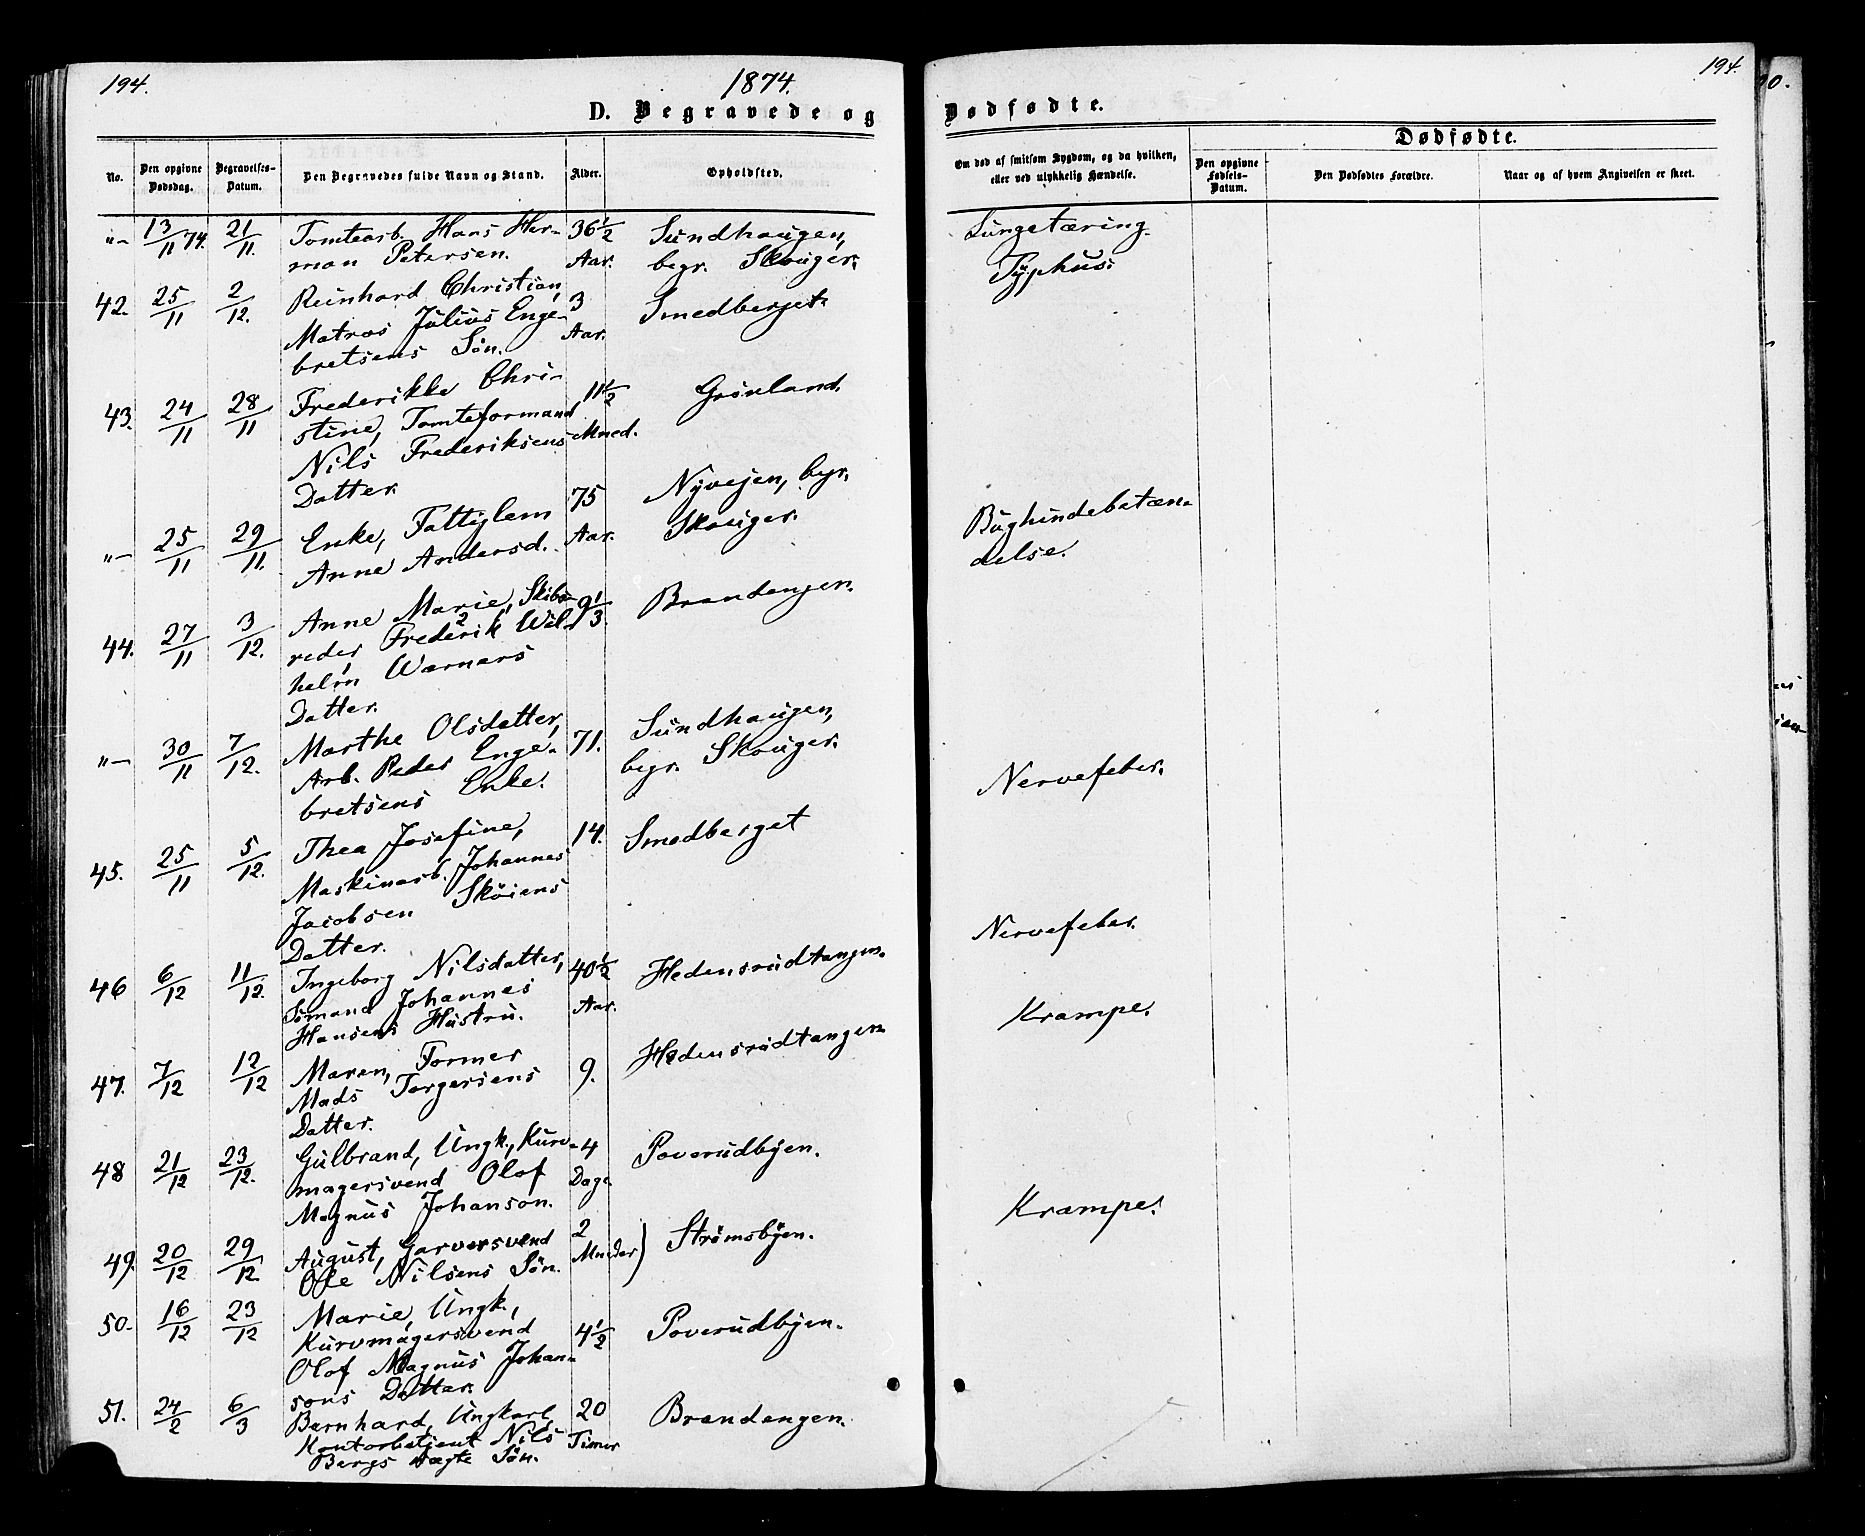 194.
1874.
D. Begravede og
No.
Den opgivne Dødsdag.
Begravelses-Datum.
Den Begravedes fulde Navn og Stand.
Alder.
Opholdsted.
"- 13/11 74. 21/11. Tomtearb. Hans Her- 36 1/2 Sundhaugen,
man Petersen. Aar. begr. Skouger.
42. 25/11 2/12. Reinhard Christian, 3 Smedberget.
Matros Julius Enge- Aar.
bretsens Søn.
43. 24/11 28/11 Frederikke Chri- 11 1/2 Grønland.
stine, Tomteformand
Nils Frederiksens Mned.
Datter.
"- 25/11 29/11. Enke, Fattiglem 75 Nyvejen, begr.
Anne Andersd. Aar. Skouger.
44. 27/11 3/12. Anne Marie, Skibs- 9 1/3. Brandengen.
reder Frederik Wil-
helm Warnars
Datter.
"- 30/11 7/12. Marthe Olsdatter, 71. Sundhaugen,
Arb. Peder Enge- begr. Skouger.
bretsens Enke.
45. 25/11 5/12. Thea Josefine, 14. Smedberget
Maskinarb. Johannes
Jacobsen Skøiens
Datter.
46 6/12 11/12. Ingeborg Nilsdatter, 40 1/2 Hedensrudtangen.
Sømand Johannes Aar.
Hansens Hustru.
47. 7/12 12/12 Maren, Former 9. Hedensrudtangen
Mads Torgersens
Datter.
48 21/12 23/12. Gulbrand, Ungk., Kurv- 4 Poverudbyen.
magersvend Olof Dage
Magnus Johanson.
49. 20/12 29/12. August, Garversvend 2 Strømsbyen.
Ole Nilsens Søn. Mneder)
50. 16/12 23/12 Marie, Ungk., 4 1/2 Poverudbyen.
Kurvmagersvend
Olof Magnus Johan-
sons Datter.
51. 24/2 6/3 Bernhard, Ungkarl, 20 Brandengen.
Kontorbetjent Nils Timer
Bergs uægte Søn.
194.
Dødfødte.
Om død af smitsom Sygdom, og da hvilken,
eller ved ulykkelig Hændelse.
Dødfødte.
Den opgivne Fødsels-Datum.
Den Dødfødtes Forældre.
Naar og af hvem Angivelsen er skeet.
Lungetæring.
Typhus.
Bughindebetæn-
delse.
Nervefeber.
Nervefeber.
Krampe.
Krampe.